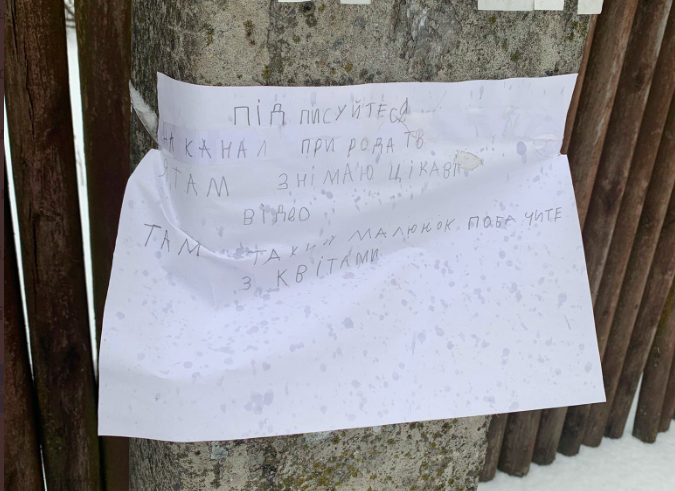 ПІДПИСУЙТЕСЯ
НА КАНАЛ ПРИРОДА ТВ
Я ТАМ ЗНІМАЮ ЦІКАВІ
ВІДЕО
ТАМ ТАКИЙ МАЛЮНОК ПОБАЧИТЕ
З КВІТАМИ